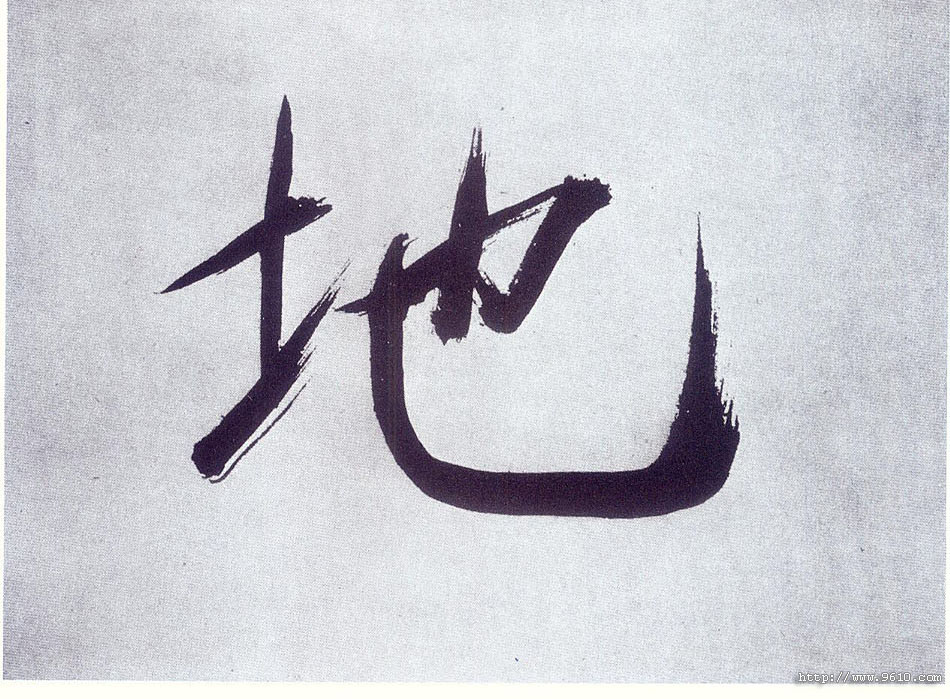 地
http://www.9610.com